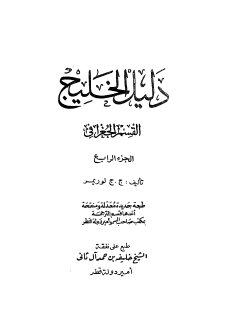 دليل الخليج
القسم الجغرافي
الجزء الرابع
تأليف: ج.ج لوريمر
طبعة جديدة معدلة ومنقحة
أعدها قسم الترجمة
بمكتب صاحب السمو أمير دولة قطر
طبع على نفقة
الشيخ خليفة بن حمد آل ثاني
أمير دولة قطر